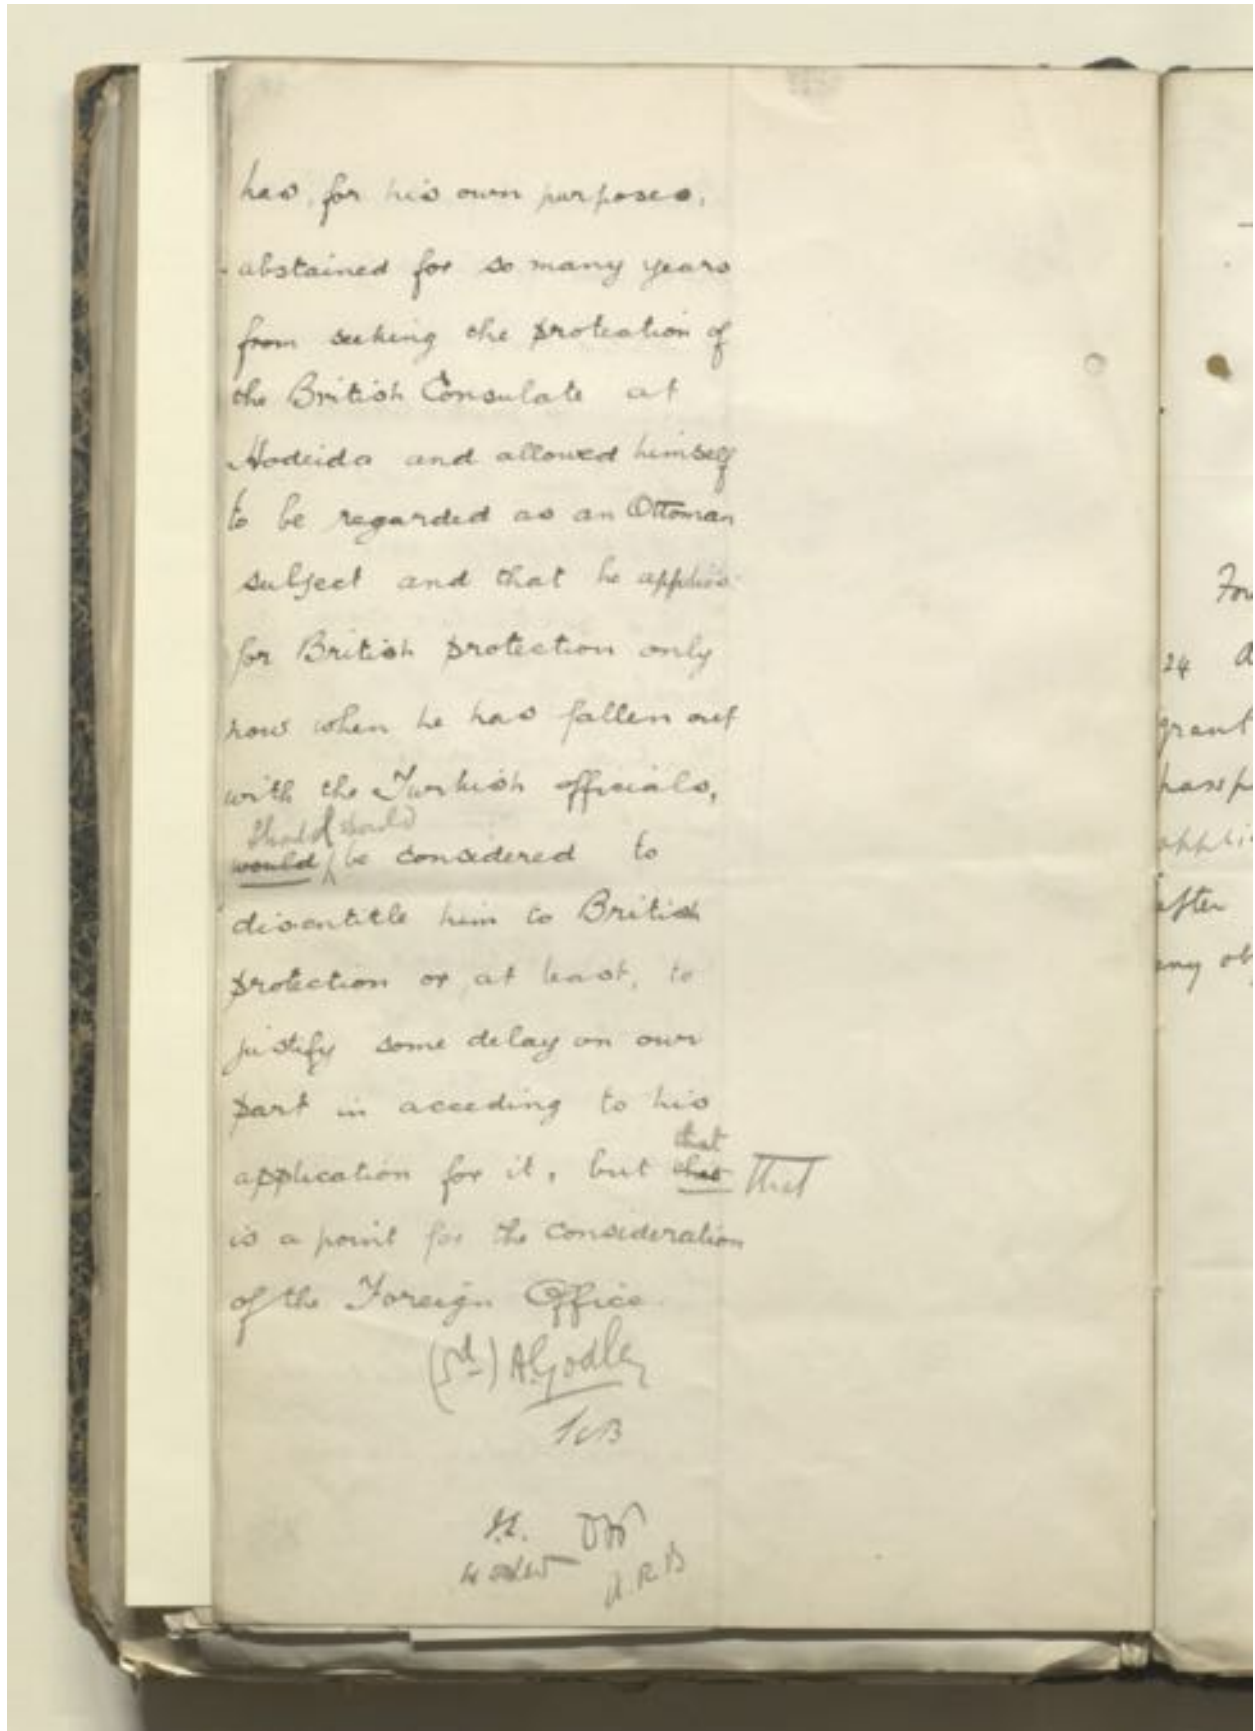 has, for his own purposes,
abstained for so many years
from seeking the protection of
the British Consulate at
Hodeida and allowed himself
to be regarded as an Ottoman
subject and that he applies
for British protection only
now when he has fallen out
with the Turkish officials,
should
would be considered to
disentitle him to British
protection or, at least, to
justify some delay on our
part in acceding to his
that
application for it, but that
is a point for the consideration
of the Foreign Office
(Sd) A Godley
A.R.B
24
grant
after
any